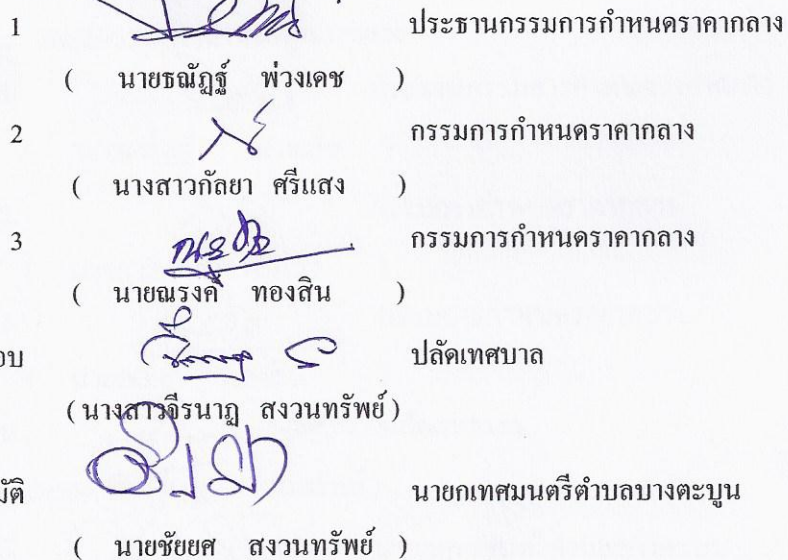 1 ประธานกรรมการกำหนดราคากลาง
( นายธณัฏฐ์ พ่วงเดช )
2 กรรมการกำหนดราคากลาง
( นางสาวกัลยา ศรีแสง )
3 กรรมการกำหนดราคากลาง
( นายณรงค์ ทองสิน )
อบ ปลัดเทศบาล
( นางสาวจีรนาฏ สงวนทรัพย์ )
มัติ นายกเทศมนตรีตำบลบางตะบูน
( นายชัยยศ สงวนทรัพย์ )